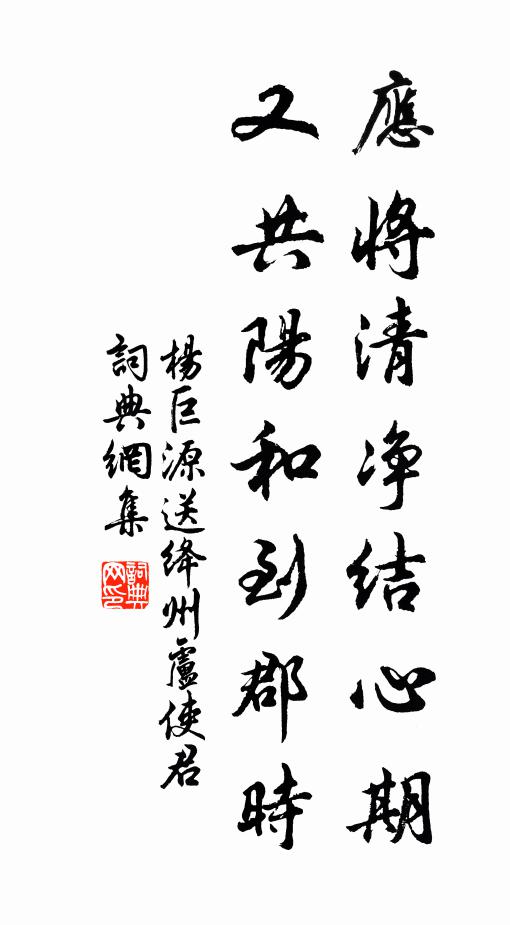 應將清净結心期
又共陽和到郡時
楊巨源送絳州盧使君
詞典網集
詞典網印